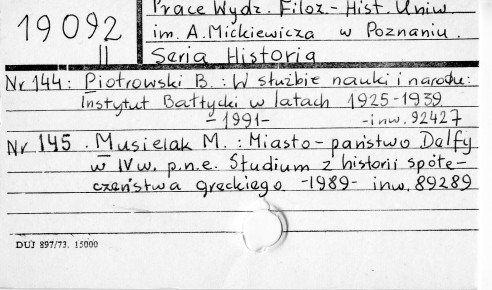 19092
II
Prace Wydz. Filoz.-Hist. Uniw.
im. A. Mickiewicza w Poznaniu.
Seria Historia
Nr 144: Piotrowski B.: W służbie nauki i narodu:
Instytut Bałtycki w latach 1925-1939
-1991- -inw. 92427
Nr 145. Musielak M.: Miasto-państwo Delfy
w IV w. p.n.e. Studium z historii społe-
czeństwa greckiego. -1989- inw. 89289
DUJ 897/73. 15000